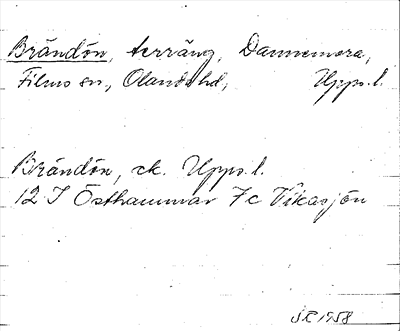 Brändön, terräng, Dannemora,
Films sn, Olands hd, Upps. l.
Brändön, ek. Upps. l.
12 I Östhammar 7c Vikasjön
SR 1958